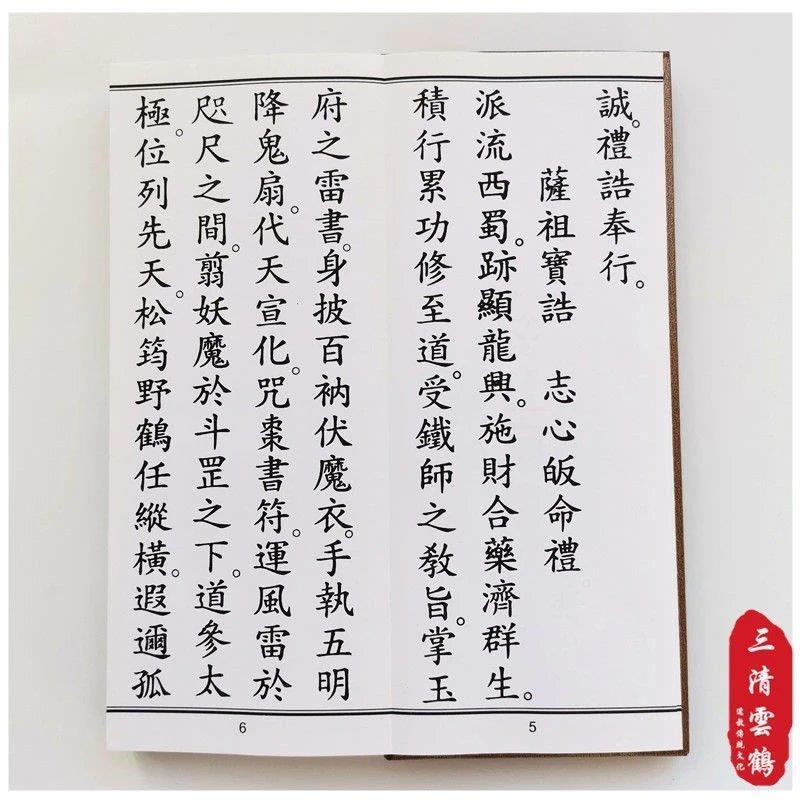 誠。禮誥奉行。
薩祖寶誥　志心皈命禮
派流西蜀。跡顯龍興。施財合藥濟群生。
積行累功修至道。受鐵師之教旨。掌玉
府之雷書。身披百衲伏魔衣。手執五明
降鬼扇。代天宣化。咒棗書符。運風雷於
咫尺之間。翦妖魔於斗罡之下。道參太
極。位列先天。松筠野鶴任縱橫。遐邇孤
5
6
三清雲鶴
道教傳統文化